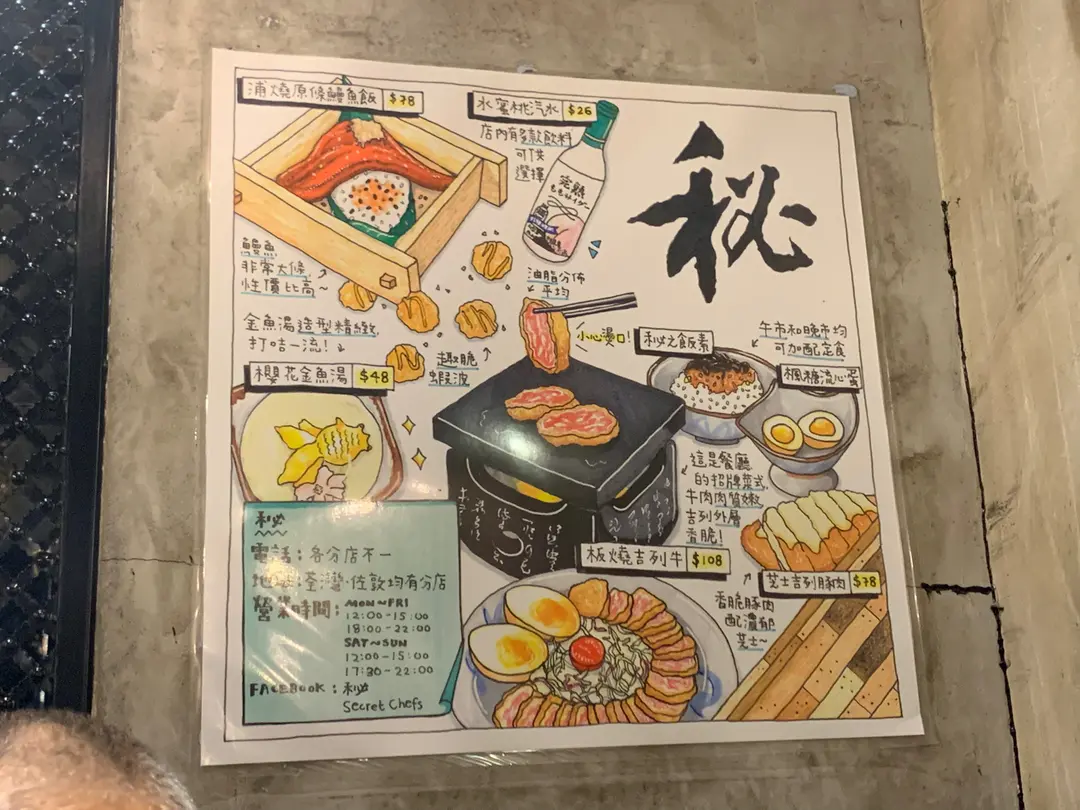 浦燒原條鰻魚飯 $78
水蜜桃汽水 $26
店內有多款飲料
可供
選擇
完熟
秘
鰻魚
非常大條
性價比高~
油脂分佈
平均
小心燙口!
金魚湯造型精緻,
打咭一流!
趣脆
蝦波
櫻花金魚湯 $48
秘之飯素
午市和晚市均
可加配定食
楓糖流心蛋
這是餐廳
的招牌菜式,
牛肉肉質嫩
吉列外層
香脆!
板燒吉列牛 $108
芝士吉列豚肉 $78
香脆豚肉
配濃郁
芝士~
秘
電話:各分店不一
地址:荃灣、佐敦均有分店
營業時間:MON~FRI
12:00-15:00
18:00-22:00
SAT~SUN
12:00-15:00
17:30-22:00
FACEBOOK:秘
Secret Chefs